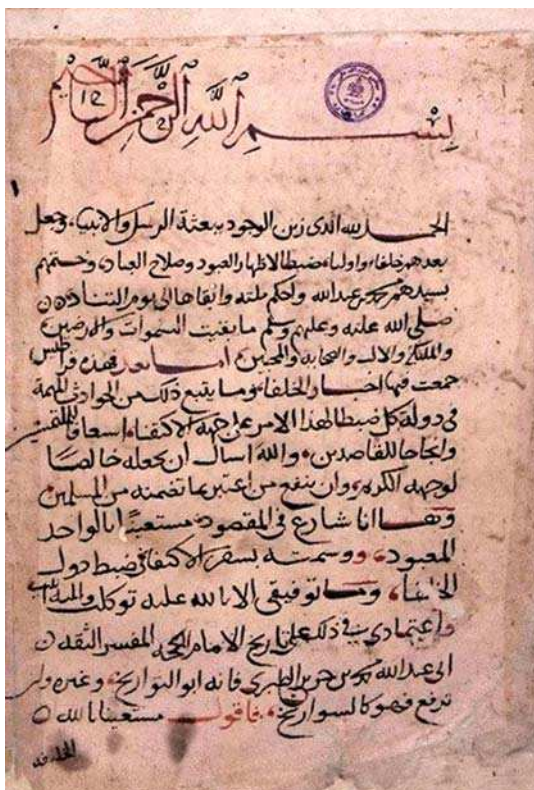 بسم الله الرحمن الرحيم
الحمد لله الذى زين الوجود ببعثة الرسل والانبياء وجعل
بعدهم خلفاء واولياء ضبطا لاظهار العبود وصلاح العباد وختمهم
بسيدهم محمد بن عبد الله واحكم ملته وابقاها الى يوم التناد
صلى الله عليه وعليهم وسلم ما بقيت السموات والارضين
والملئكة والال والصحابة والمحبين اما بعد فهذه قراطيس
جمعت فيها اخبار الخلفاء وما يتبع ذلك من الحوادث المهمة
فى دولة كل ضبطا لهذا الامر على جهة الاكتفاء اسعافا
وانجاحا للقاصدين والله اسال ان يجعله خالصا
لوجهه الكريم وان ينفع من اعتبر بما تضمنه من المسلمين
وها انا شارع فى المقصود مستعينا بالواحد
المعبود ووسمته بسفر الاكتفا فى ضبط دول
الخلفا وما توفيقى الا بالله عليه توكلت واليه انيب
واعتمادى فى ذلك على تاريخ الامام الحجه المفسر الثقه
ابى عبد الله محمد بن جرير الطبرى فانه ابو التواريخ وغيره
ترفع فهو كالسواريخ فاقول مستعينا بالله
الخليفه